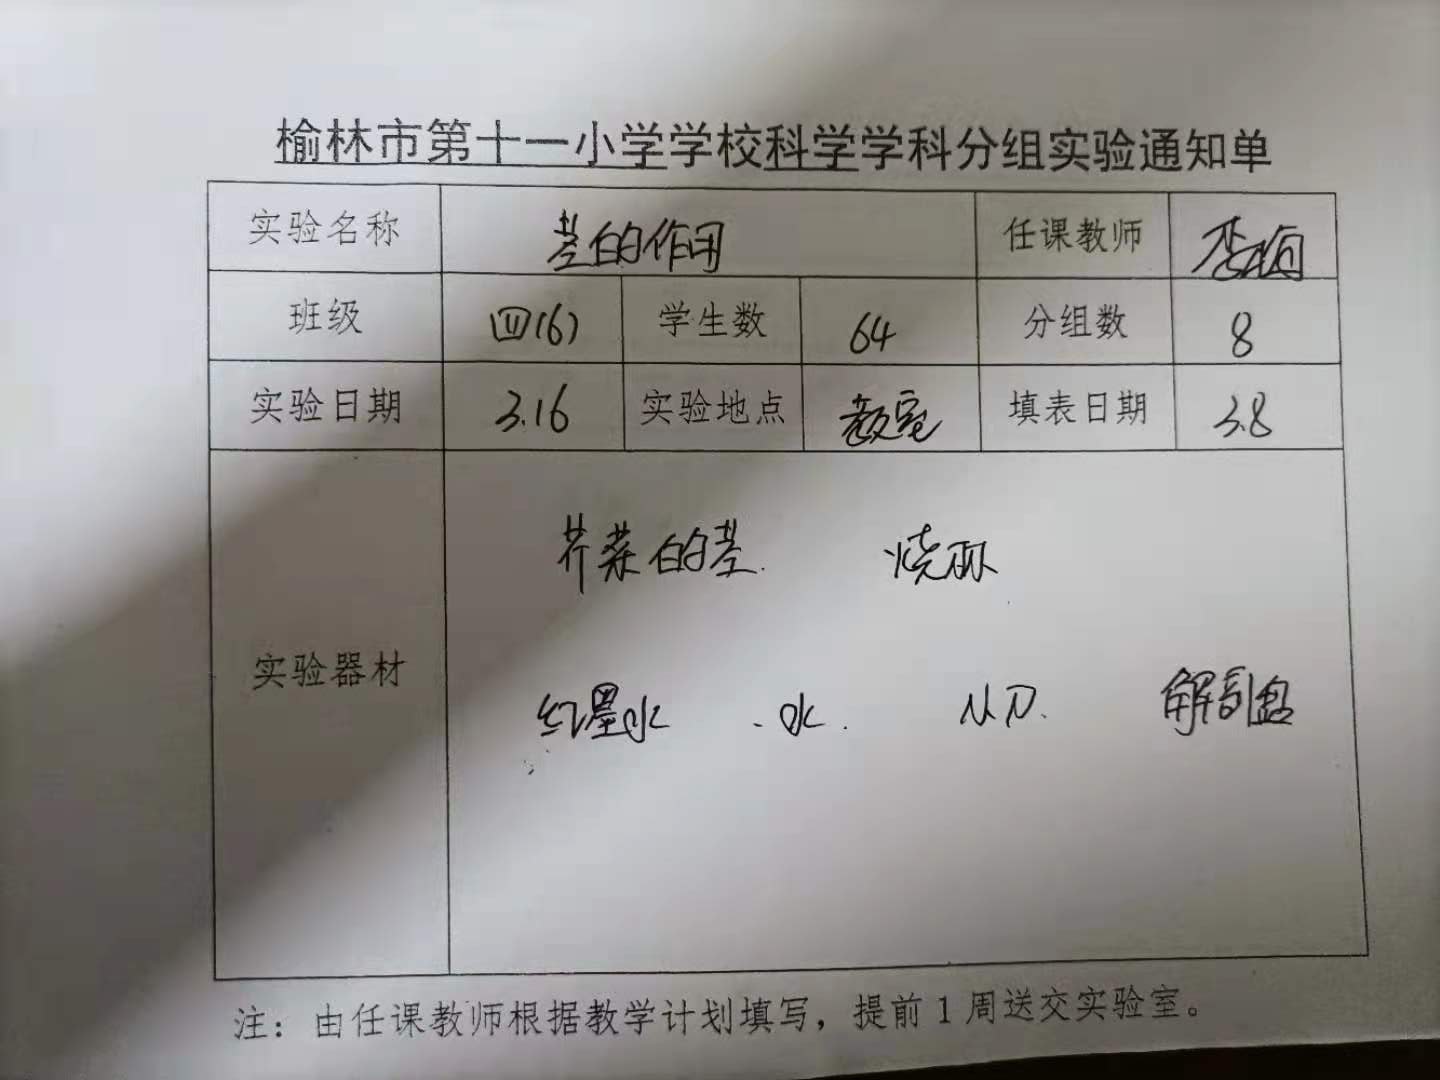 榆林市第十一小学学校科学学科分组实验通知单
实验名称 茎的作用 任课教师
班级 四(6) 学生数 64 分组数 8
实验日期 3.16 实验地点 教室 填表日期 3.8
芹菜的茎. 烧杯
实验器材
红墨水 水. 小刀. 解剖盘
注：由任课教师根据教学计划填写，提前1周送交实验室。